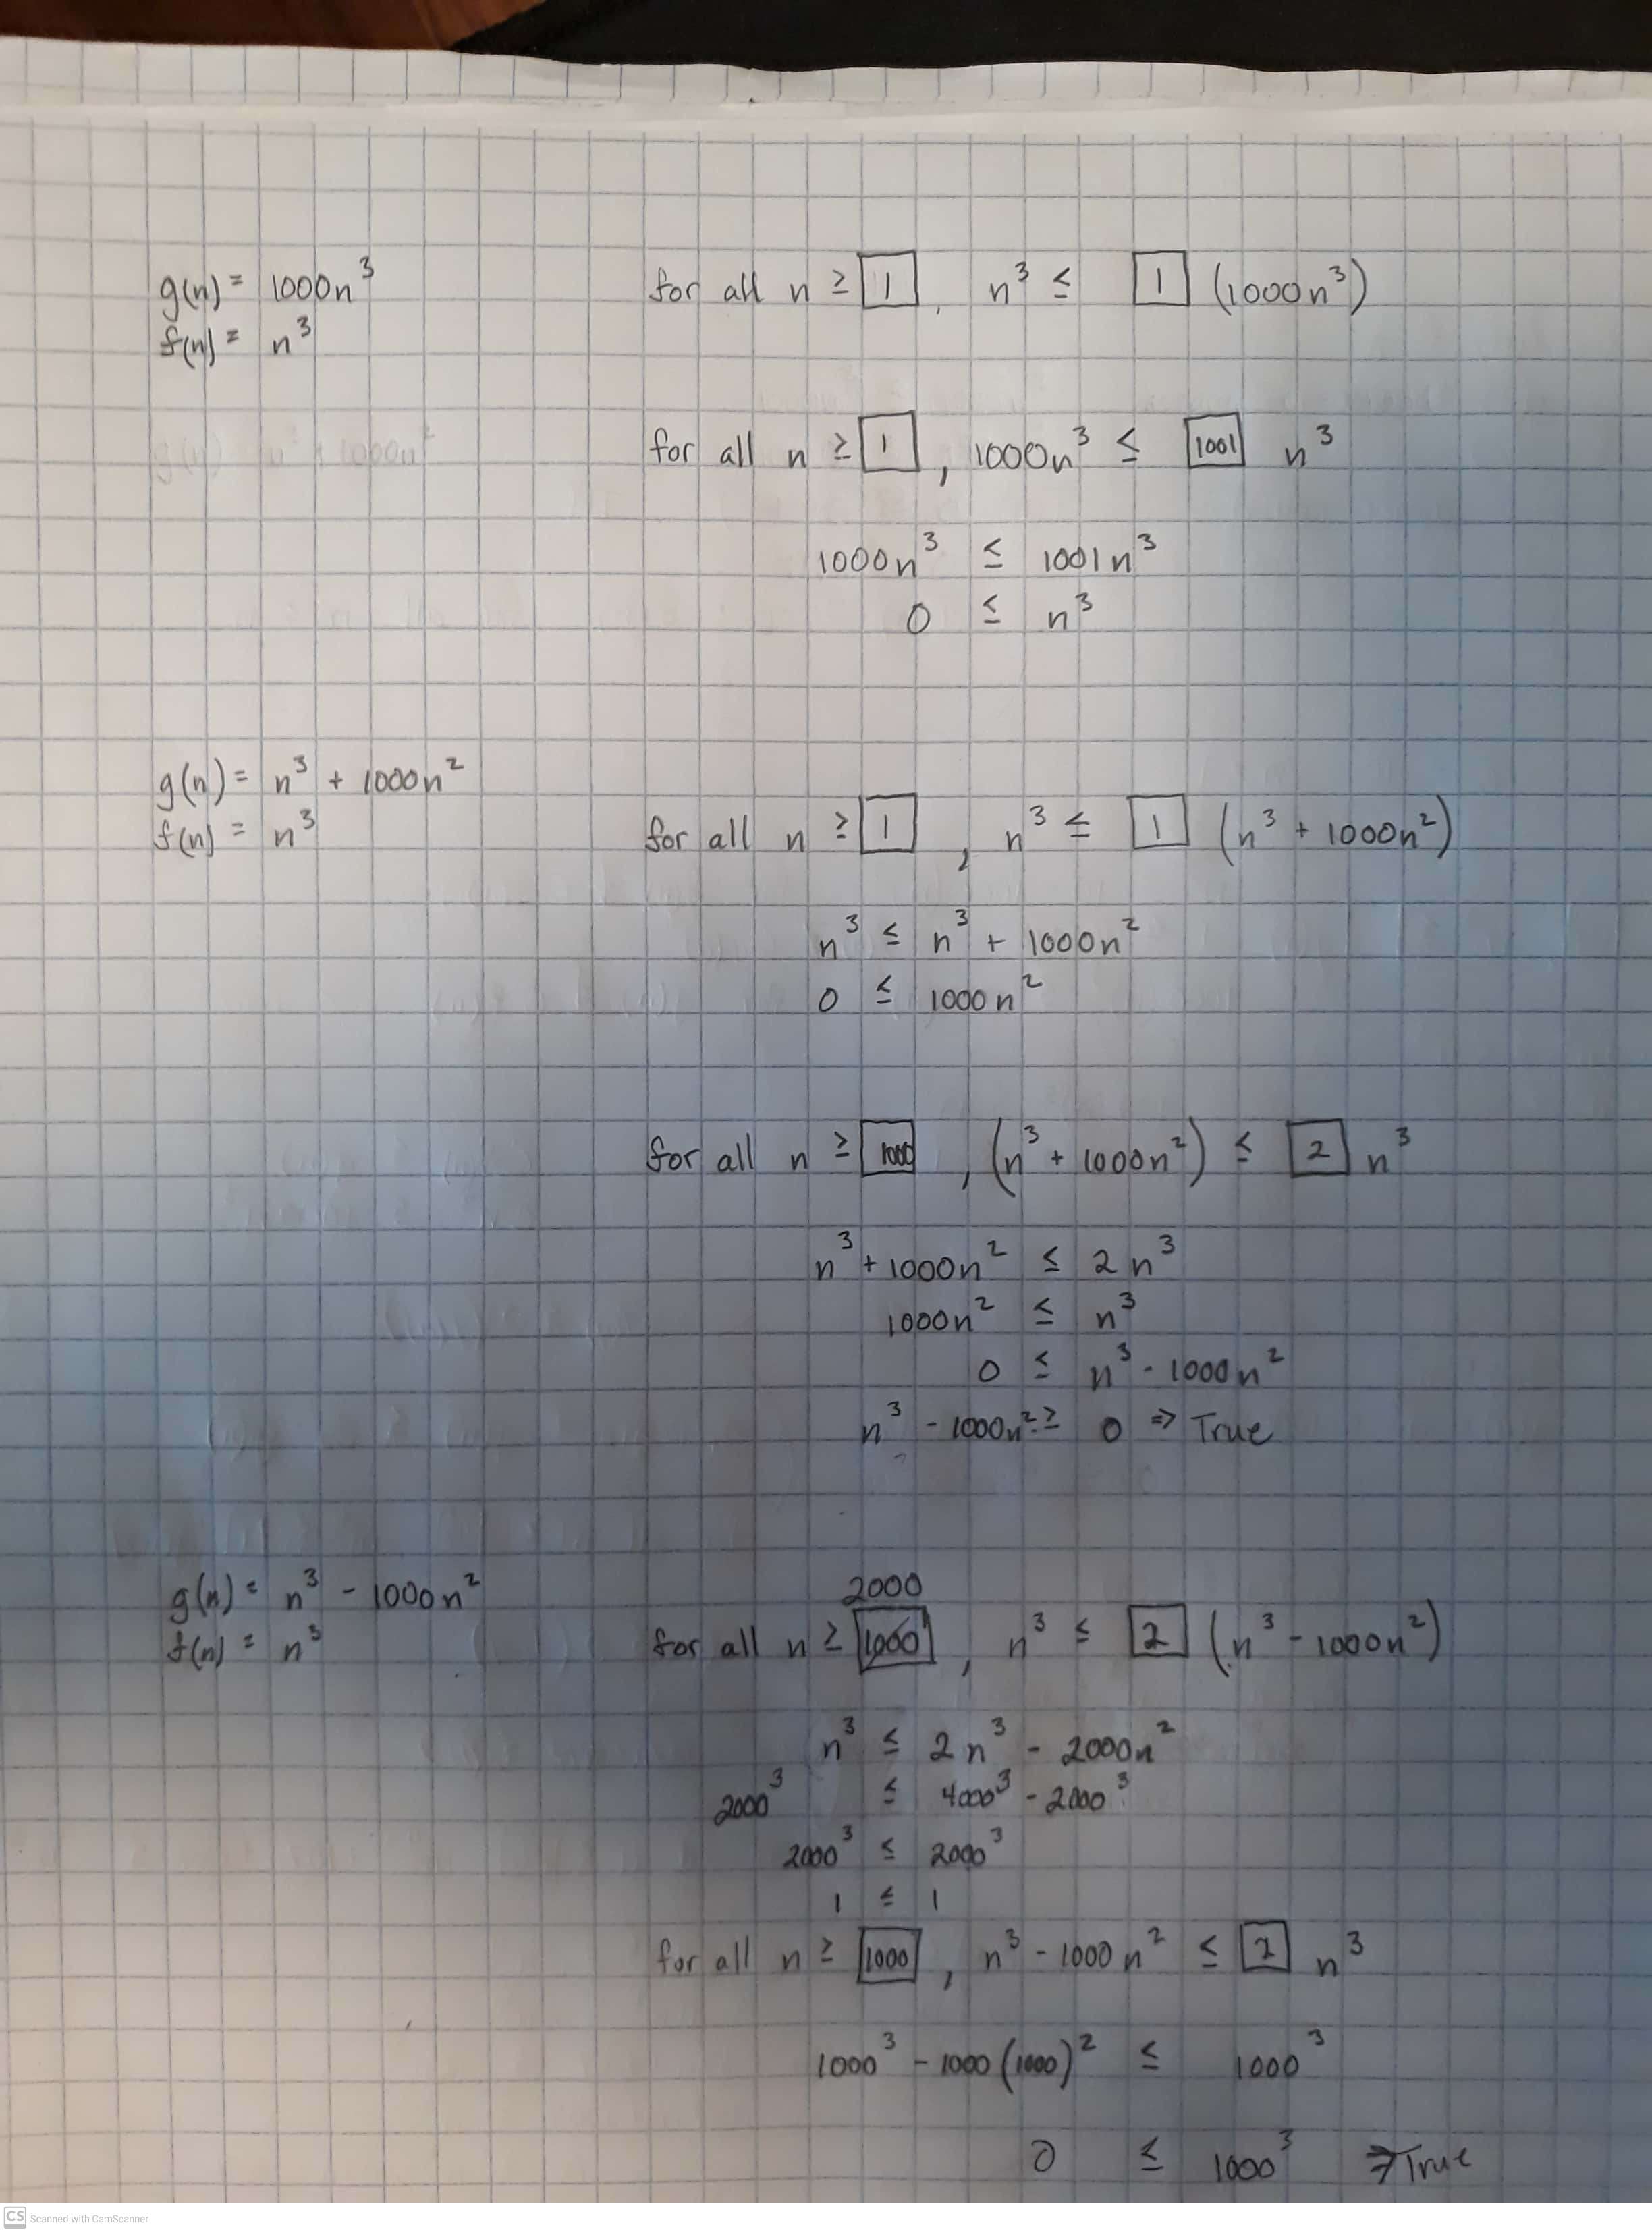 g(n) = 1000n³
for all n ≥ 1, n³ ≤ 1 (1000n³)
f(n) = n³
for all n ≥ 1, 1000n³ ≤ 1001 n³
1000n³ ≤ 1001n³
0 ≤ n³
g(n) = n³ + 1000n²
f(n) = n³
for all n ≥ 1, n³ ≤ 1 (n³ + 1000n²)
n³ ≤ n³ + 1000n²
0 ≤ 1000n²
for all n ≥ 1000, (n³ + 1000n²) ≤ 2 n³
n³ + 1000n² ≤ 2n³
1000n² ≤ n³
0 ≤ n³ - 1000n²
n³ - 1000n² ≥ 0 ⇒ True
g(n) = n³ - 1000n²
f(n) = n³
2000
for all n ≥ 1000, n³ ≤ 2 (n³ - 1000n²)
n³ ≤ 2n³ - 2000n²
2000³ ≤ 4000³ - 2000³
2000³ ≤ 2000³
1 ≤ 1
for all n ≥ 1000, n³ - 1000n² ≤ 2 n³
1000³ - 1000(1000)² ≤ 1000³
0 ≤ 1000³ ⇒ True
CS Scanned with CamScanner